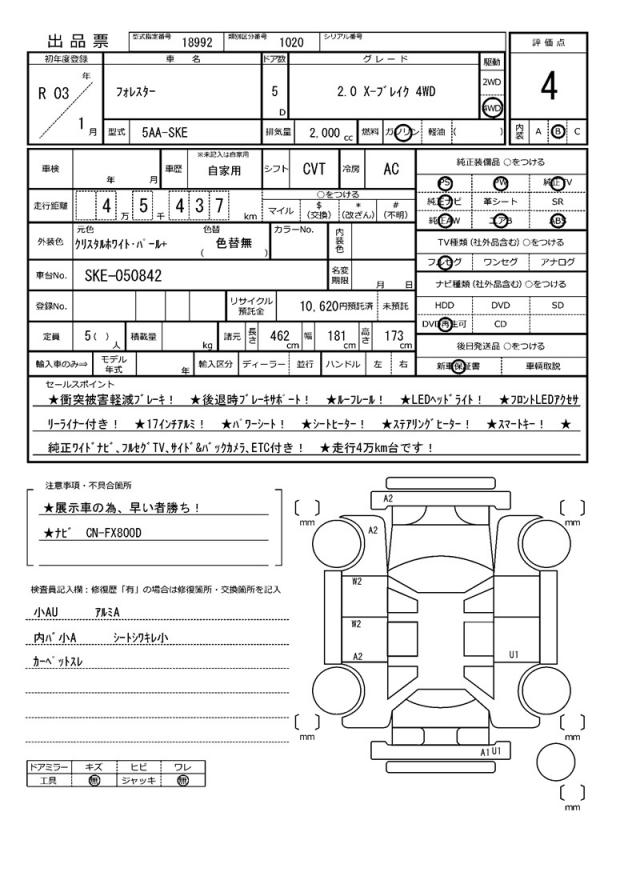 出品票 型式指定番号 18992 類別区分番号 1020 シリアル番号
評価点
初年度登録 車名 ドア数 グレード 駆動
R 03 年 フォレスター 5 D 2.0 X-ブレイク 4WD 2WD 4WD 4
1 月 型式 5AA-SKE 排気量 2,000 cc 燃料 ガソリン 軽油 ( ) 内装 A B C
車検 年 月 車歴 ※未記入は自家用 自家用 シフト CVT 冷房 AC 純正装備品 ○をつける
PS PW 純正TV
走行距離 4 万 5 千 4 3 7 km ○をつける 純正ナビ 革シート SR
マイル $(交換) *(改ざん) #(不明) 純正AW エアB ABS
外装色 元色 クリスタルホワイト・パール+ 色替 ( 色替無 ) カラーNo. 内装色 TV種類 (社外品含む) ○をつける
フルセグ ワンセグ アナログ
車台No. SKE-050842 名変期限 月 日 ナビ種類 (社外品含む) ○をつける
登録No. リサイクル預託金 10,620円預託済 未預託 HDD DVD SD
DVD再生可 CD
定員 5( ) 人 積載量 kg 諸元 長さ 462 cm 幅 181 cm 高さ 173 cm 後日発送品 ○をつける
輸入車のみ⇒ モデル年式 年 輸入区分 ディーラー 並行 ハンドル 左 右 新車保証書 車輌取説
セールスポイント
★衝突被害軽減ブレーキ! ★後退時ブレーキサポート! ★ルーフレール! ★LEDヘッドライト! ★フロントLEDアクセサ
リーライナー付き! ★17インチアルミ! ★パワーシート! ★シートヒーター! ★ステアリングヒーター! ★スマートキー! ★
純正ワイドナビ、フルセグTV、サイド&バックカメラ、ETC付き! ★走行4万km台です!
注意事項・不具合箇所
★展示車の為、早い者勝ち!
★ナビ CN-FX800D
検査員記入欄:修復歴「有」の場合は修復箇所・交換箇所を記入
小AU アルミA
内バ小A シートシワキレ小
カーペットスレ
ドアミラー キズ ヒビ ワレ
工具 無 ジャッキ 無
A2
[ ] mm [ ] mm
A2
W2
W2
A2 U1
[ ] mm [ ] mm
A1 U1
[ ] mm